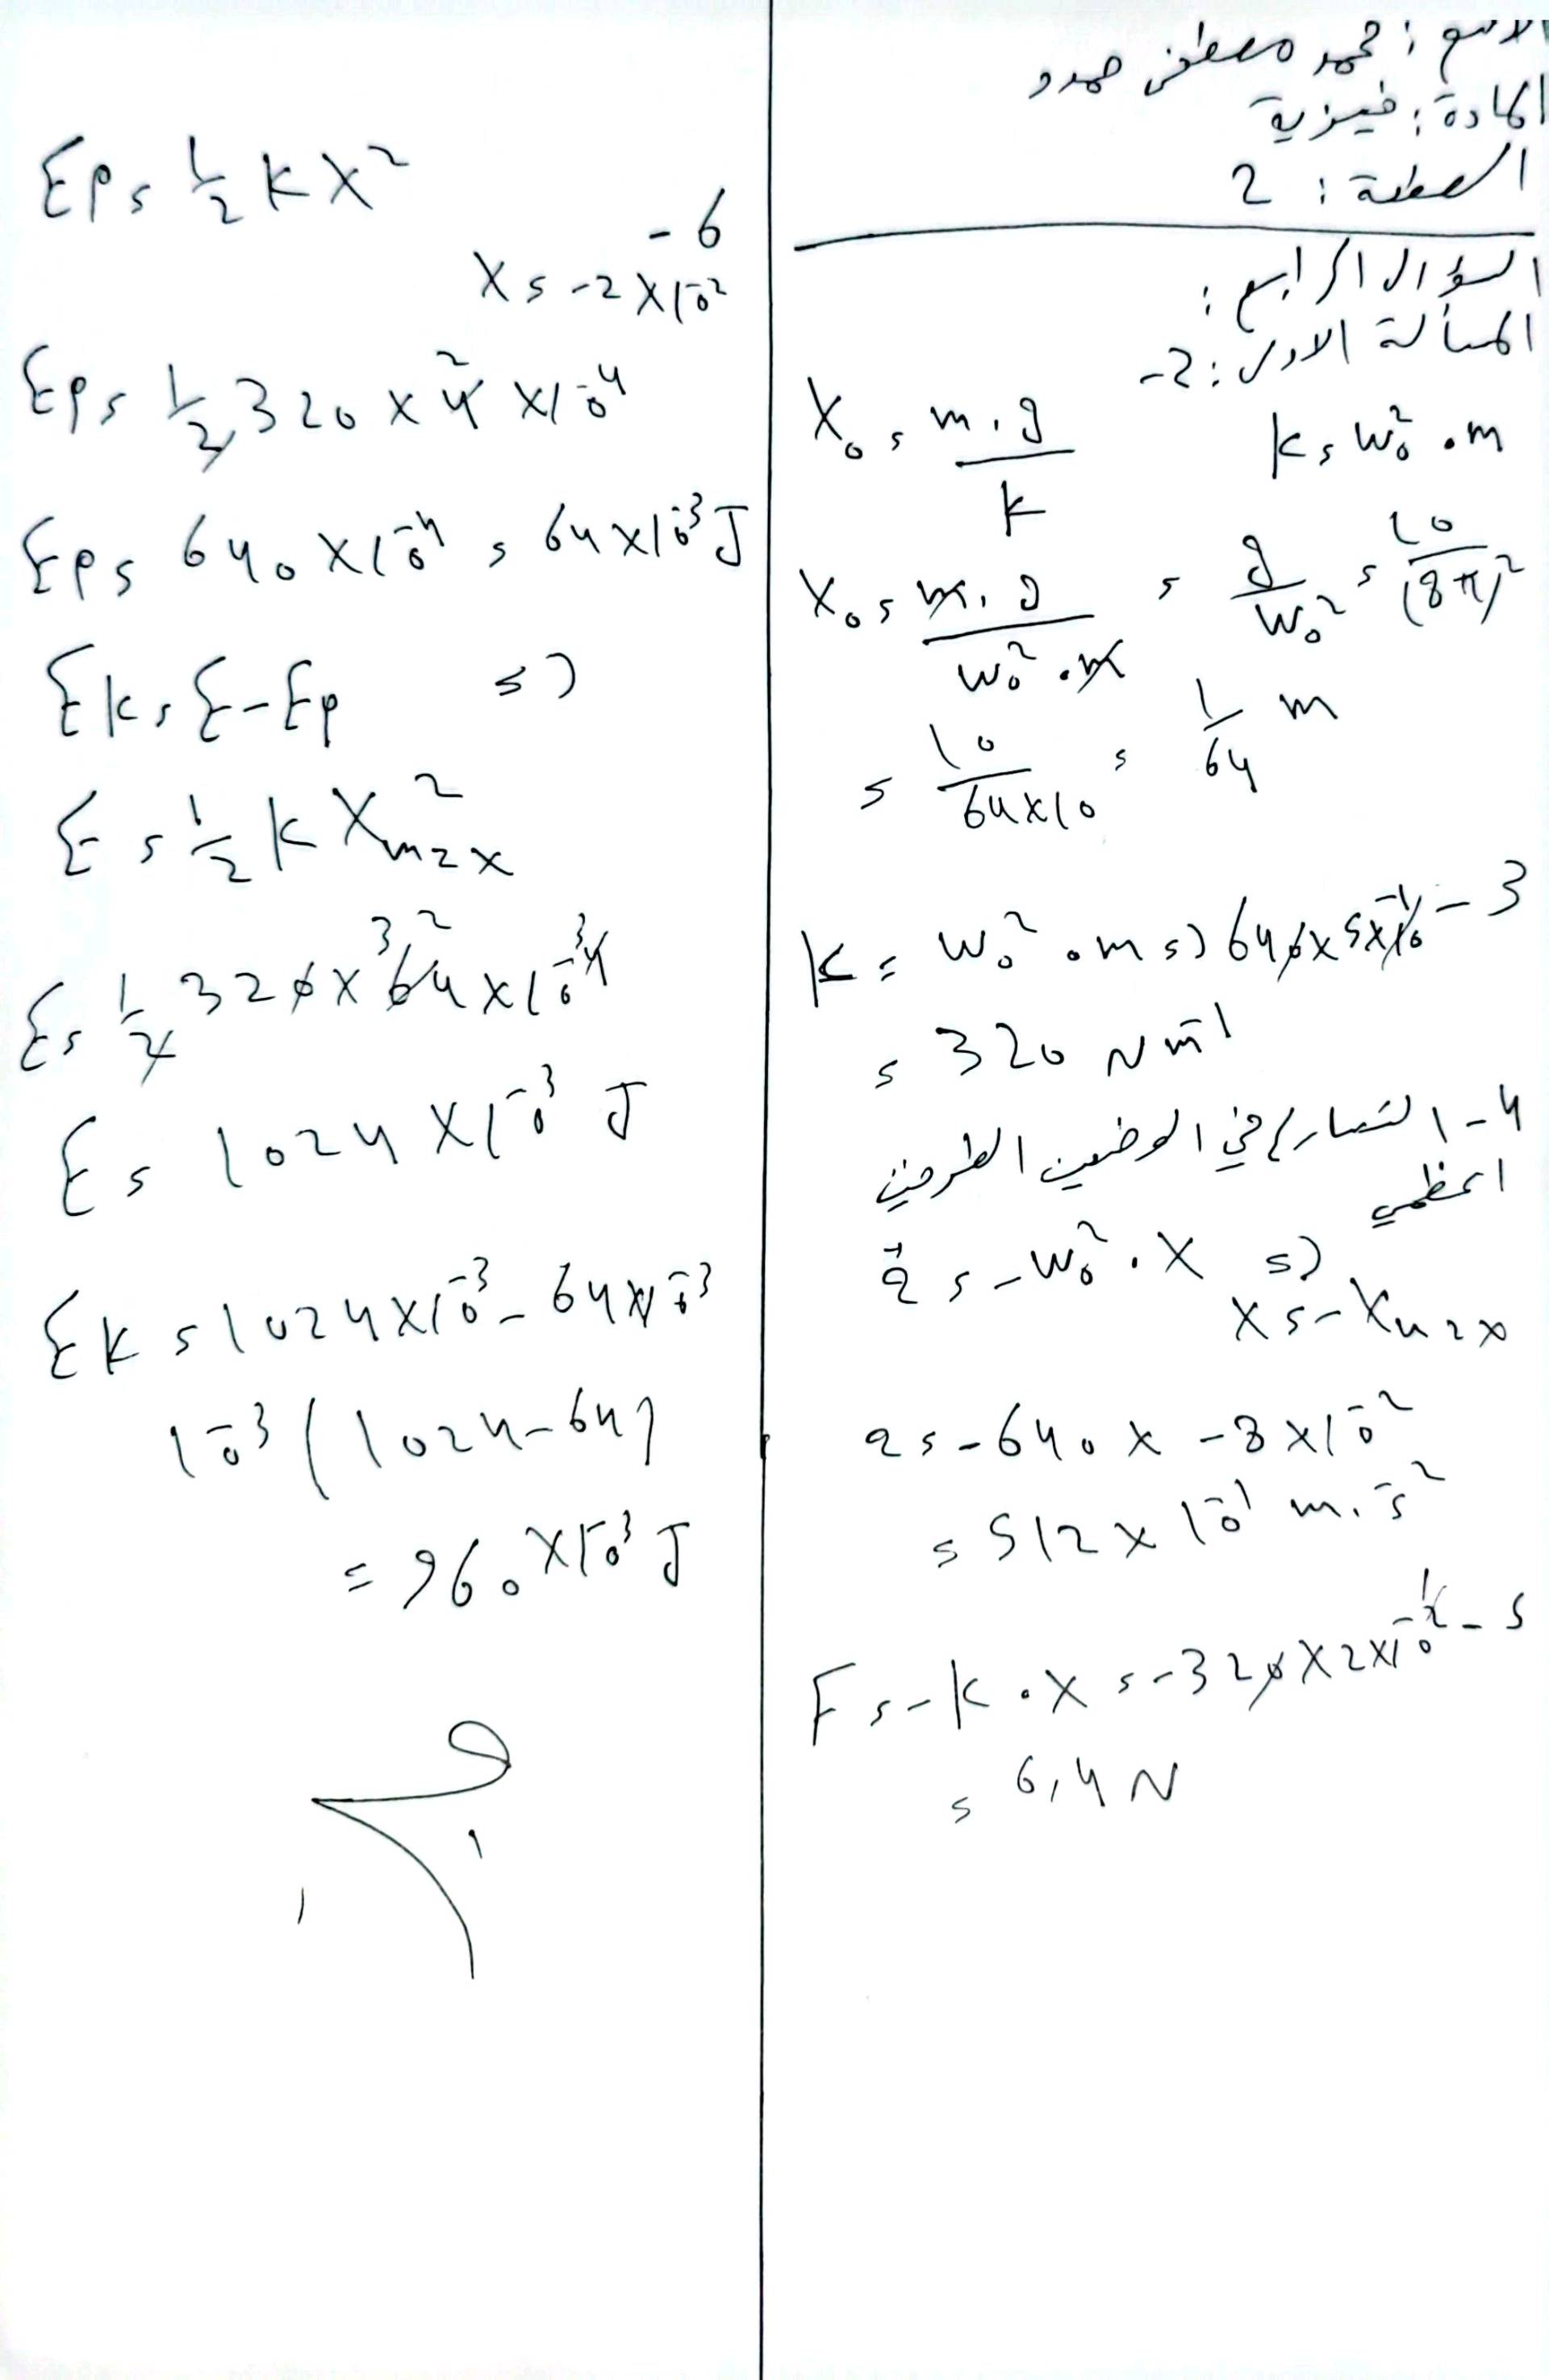 الاسم : محمد مصطفى حمدو
المادة : فيزية
الصفحة : 2
السؤال الرابع :
المسألة الاولى : 2-
X₀ = m.g / k
k = w₀² . m
X₀ = m.g / w₀².m = g / w₀² = 10 / (8π)²
= 10 / 64×10 = 1/64 m
3 -
k = w₀² . m => 640×5×10⁻¹
= 320 N m⁻¹
4- التسارع في الوضعين الطرفين
اعظمي
a⃗ = -w₀² . X =>
X = -Xmax
a = -640 × -8×10⁻²
= 512 × 10⁻¹ m.s⁻²
5 -
F = -k . X = -320×2×10⁻²
= 6,4 N
6 -
Ep = 1/2 k X²
X = -2×10⁻²
Ep = 1/2 320 × 4 ×10⁻⁴
Ep = 640×10⁻⁴ = 64×10⁻³ J
Ek = E - Ep =>
E = 1/2 k Xmax²
E = 1/2 320 × 64 × 10⁻⁴
E = 1024 ×10⁻³ J
Ek = 1024×10⁻³ - 64×10⁻³
10⁻³ (1024-64)
= 960×10⁻³ J